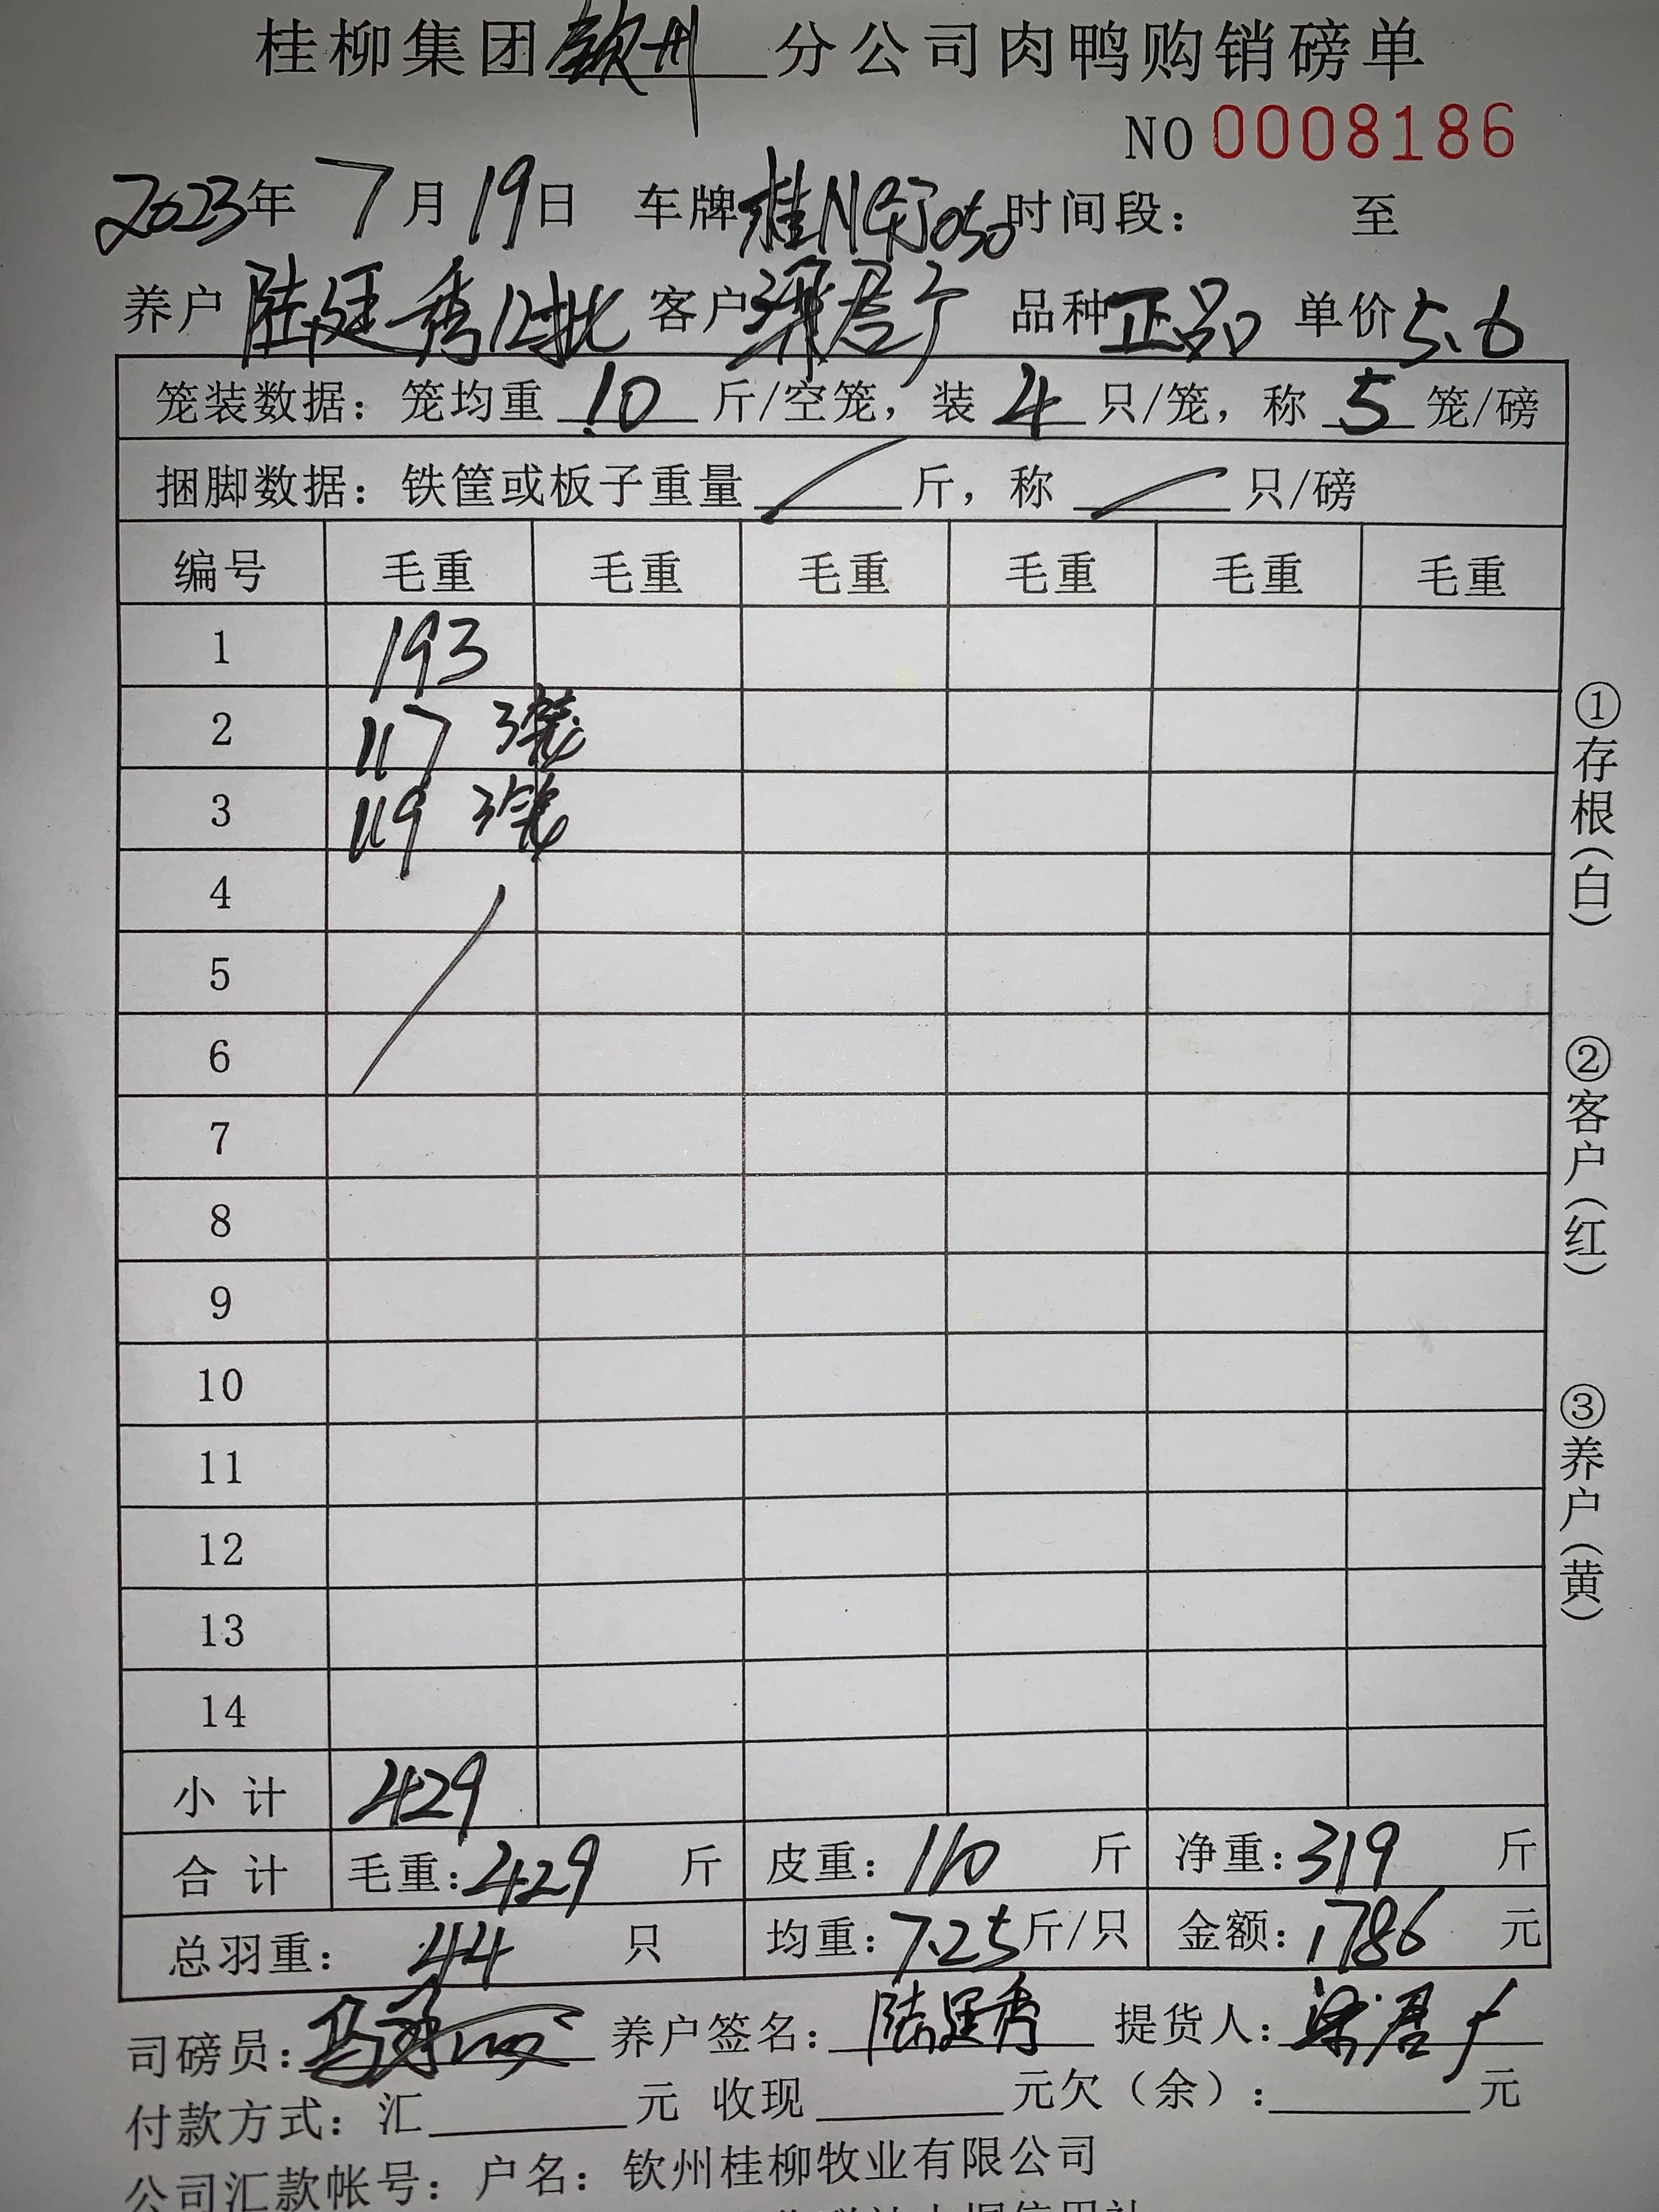 桂柳集团钦州分公司肉鸭购销磅单
NO 0008186
2023年 7月19日 车牌桂N 050 时间段： 至
养户 陆廷秀 批 客户 梁君 品种 正品 单价 5.6
笼装数据：笼均重 10 斤/空笼，装 4 只/笼，称 5 笼/磅
捆脚数据：铁筐或板子重量 / 斤，称 / 只/磅
编号 毛重 毛重 毛重 毛重 毛重 毛重
1 193
2 117 3笼
3 119 3笼
4
5
6
7
8
9
10
11
12
13
14
小计 429
合计 毛重：429 斤 皮重：110 斤 净重：319 斤
总羽重： 44 只 均重：7.25斤/只 金额：1786 元
司磅员： 养户签名：陆廷秀 提货人：梁君
付款方式：汇 元 收现 元欠（余）： 元
公司汇款帐号：户名：钦州桂柳牧业有限公司
①存根（白）
②客户（红）
③养户（黄）